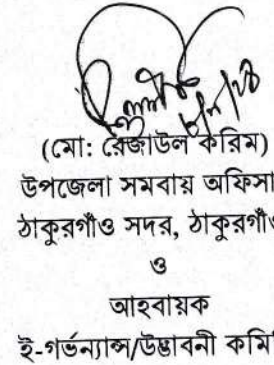 (মো: রেজাউল করিম)
উপজেলা সমবায় অফিসা
ঠাকুরগাঁও সদর, ঠাকুরগাঁও
ও
আহবায়ক
ই-গর্ভন্যান্স/উদ্ভাবনী কমি